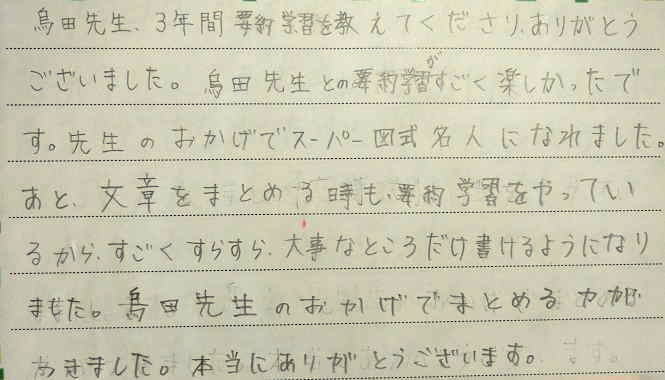 島田先生、3年間要約学習を教えてくださり、ありがとう
ございました。島田先生との要約学習がすごく楽しかったで
す。先生のおかげでスーパー図式名人になれました。
あと、文章をまとめる時も、要約学習をやってい
るから、すごくすらすら、大事なところだけ書けるようになり
ました。島田先生のおかげでまとめる力が
つきました。本当にありがとうございます。